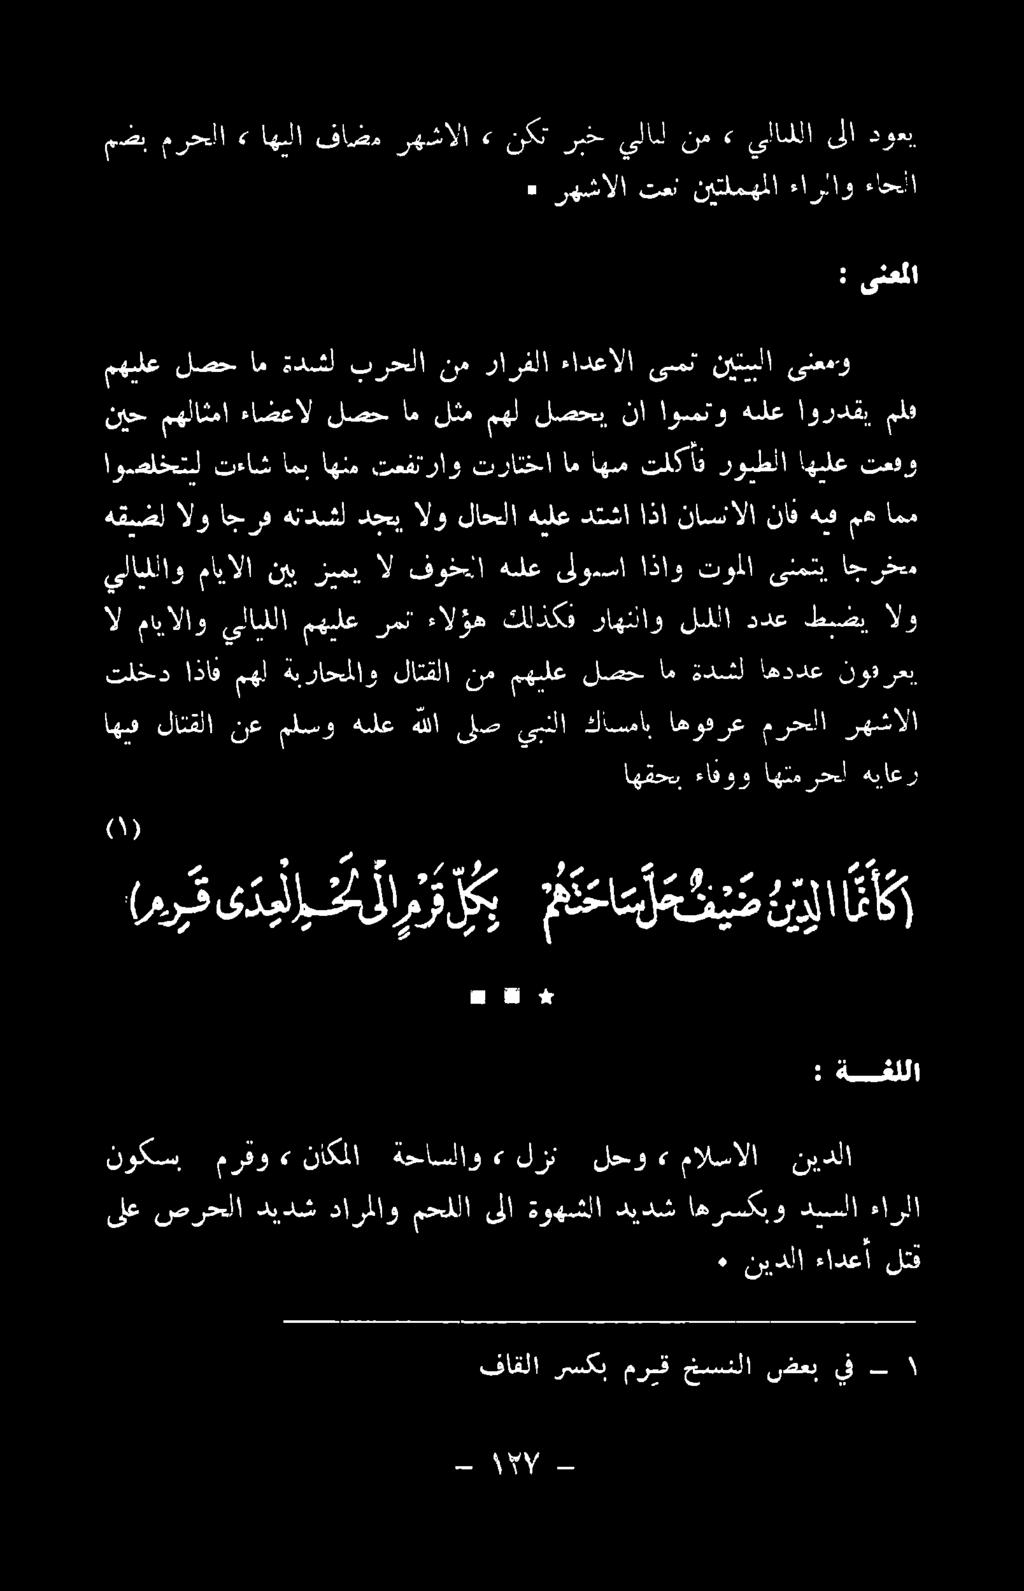 يعود الى الليالي ، من ليالي خبر تكن ، الاشهر مضاف اليها ، الحرم بضم
الحاء والراء المهملتين نعت الاشهر .
المعنى :
ومعنى البيتين تمنى الاعداء الفرار من الحرب لشدة ما حصل عليهم
فلم يقدروا عليه وتمنوا ان يحصل لهم مثل ما حصل لاعضاء امثالهم حين
وقعت عليها الطيور فأكلت منها ما اختارت وارتفعت منها بما شاءت ليتخلصوا
مما هم فيه فان الانسان اذا اشتد عليه الحال ولا يجد لشدته فرجا ولا لضيقه
مخرجا يتمنى الموت واذا استولى عليه الخوف لا يميز بين الايام والليالي
ولا يضبط عدد الليل والنهار فكذلك هؤلاء تمر عليهم الليالي والايام لا
يعرفون عددها لشدة ما حصل عليهم من القتال والمحاربة لهم فاذا دخلت
الاشهر الحرم عرفوها بامساك النبي صلى الله عليه وسلم عن القتال فيها
رعايه لحرمتها ووفاء بحقها
(١)
(كَأَنَّمَا الدِّينُ ضَيْفٌ حَلَّ سَاحَتَهُمْ بِكُلِّ قَرْمٍ إِلَى لَحْمِ الْعِدَى قَرِمِ)
اللغــة :
الدين الاسلام ، وحل نزل ، والساحة المكان ، وقرم بسكون
الراء السيد وبكسرها شديد الشهوة الى اللحم والمراد شديد الحرص على
قتل أعداء الدين .
١ - في بعض النسخ قرم بكسر القاف
- ١٢٧ -